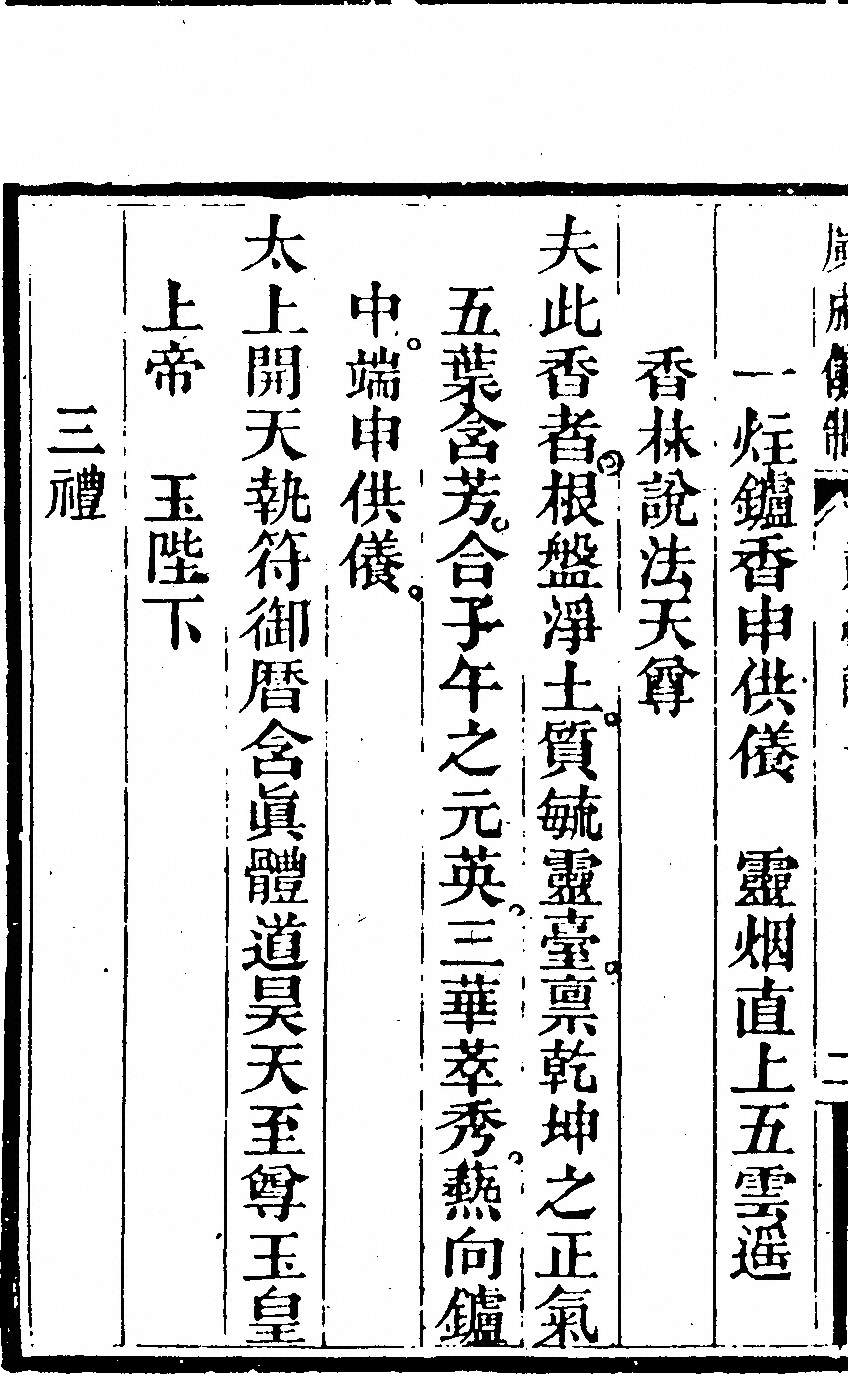 一炷鑪香申供儀　靈烟直上五雲遥
香林說法天尊
夫此香者。根盤淨土。質毓靈臺。禀乾坤之正氣
五葉含芳。合子午之元英。三華萃秀。爇向鑪
中。端申供儀。
太上開天執符御曆含眞體道昊天至尊玉皇
上帝　玉陛下
三禮